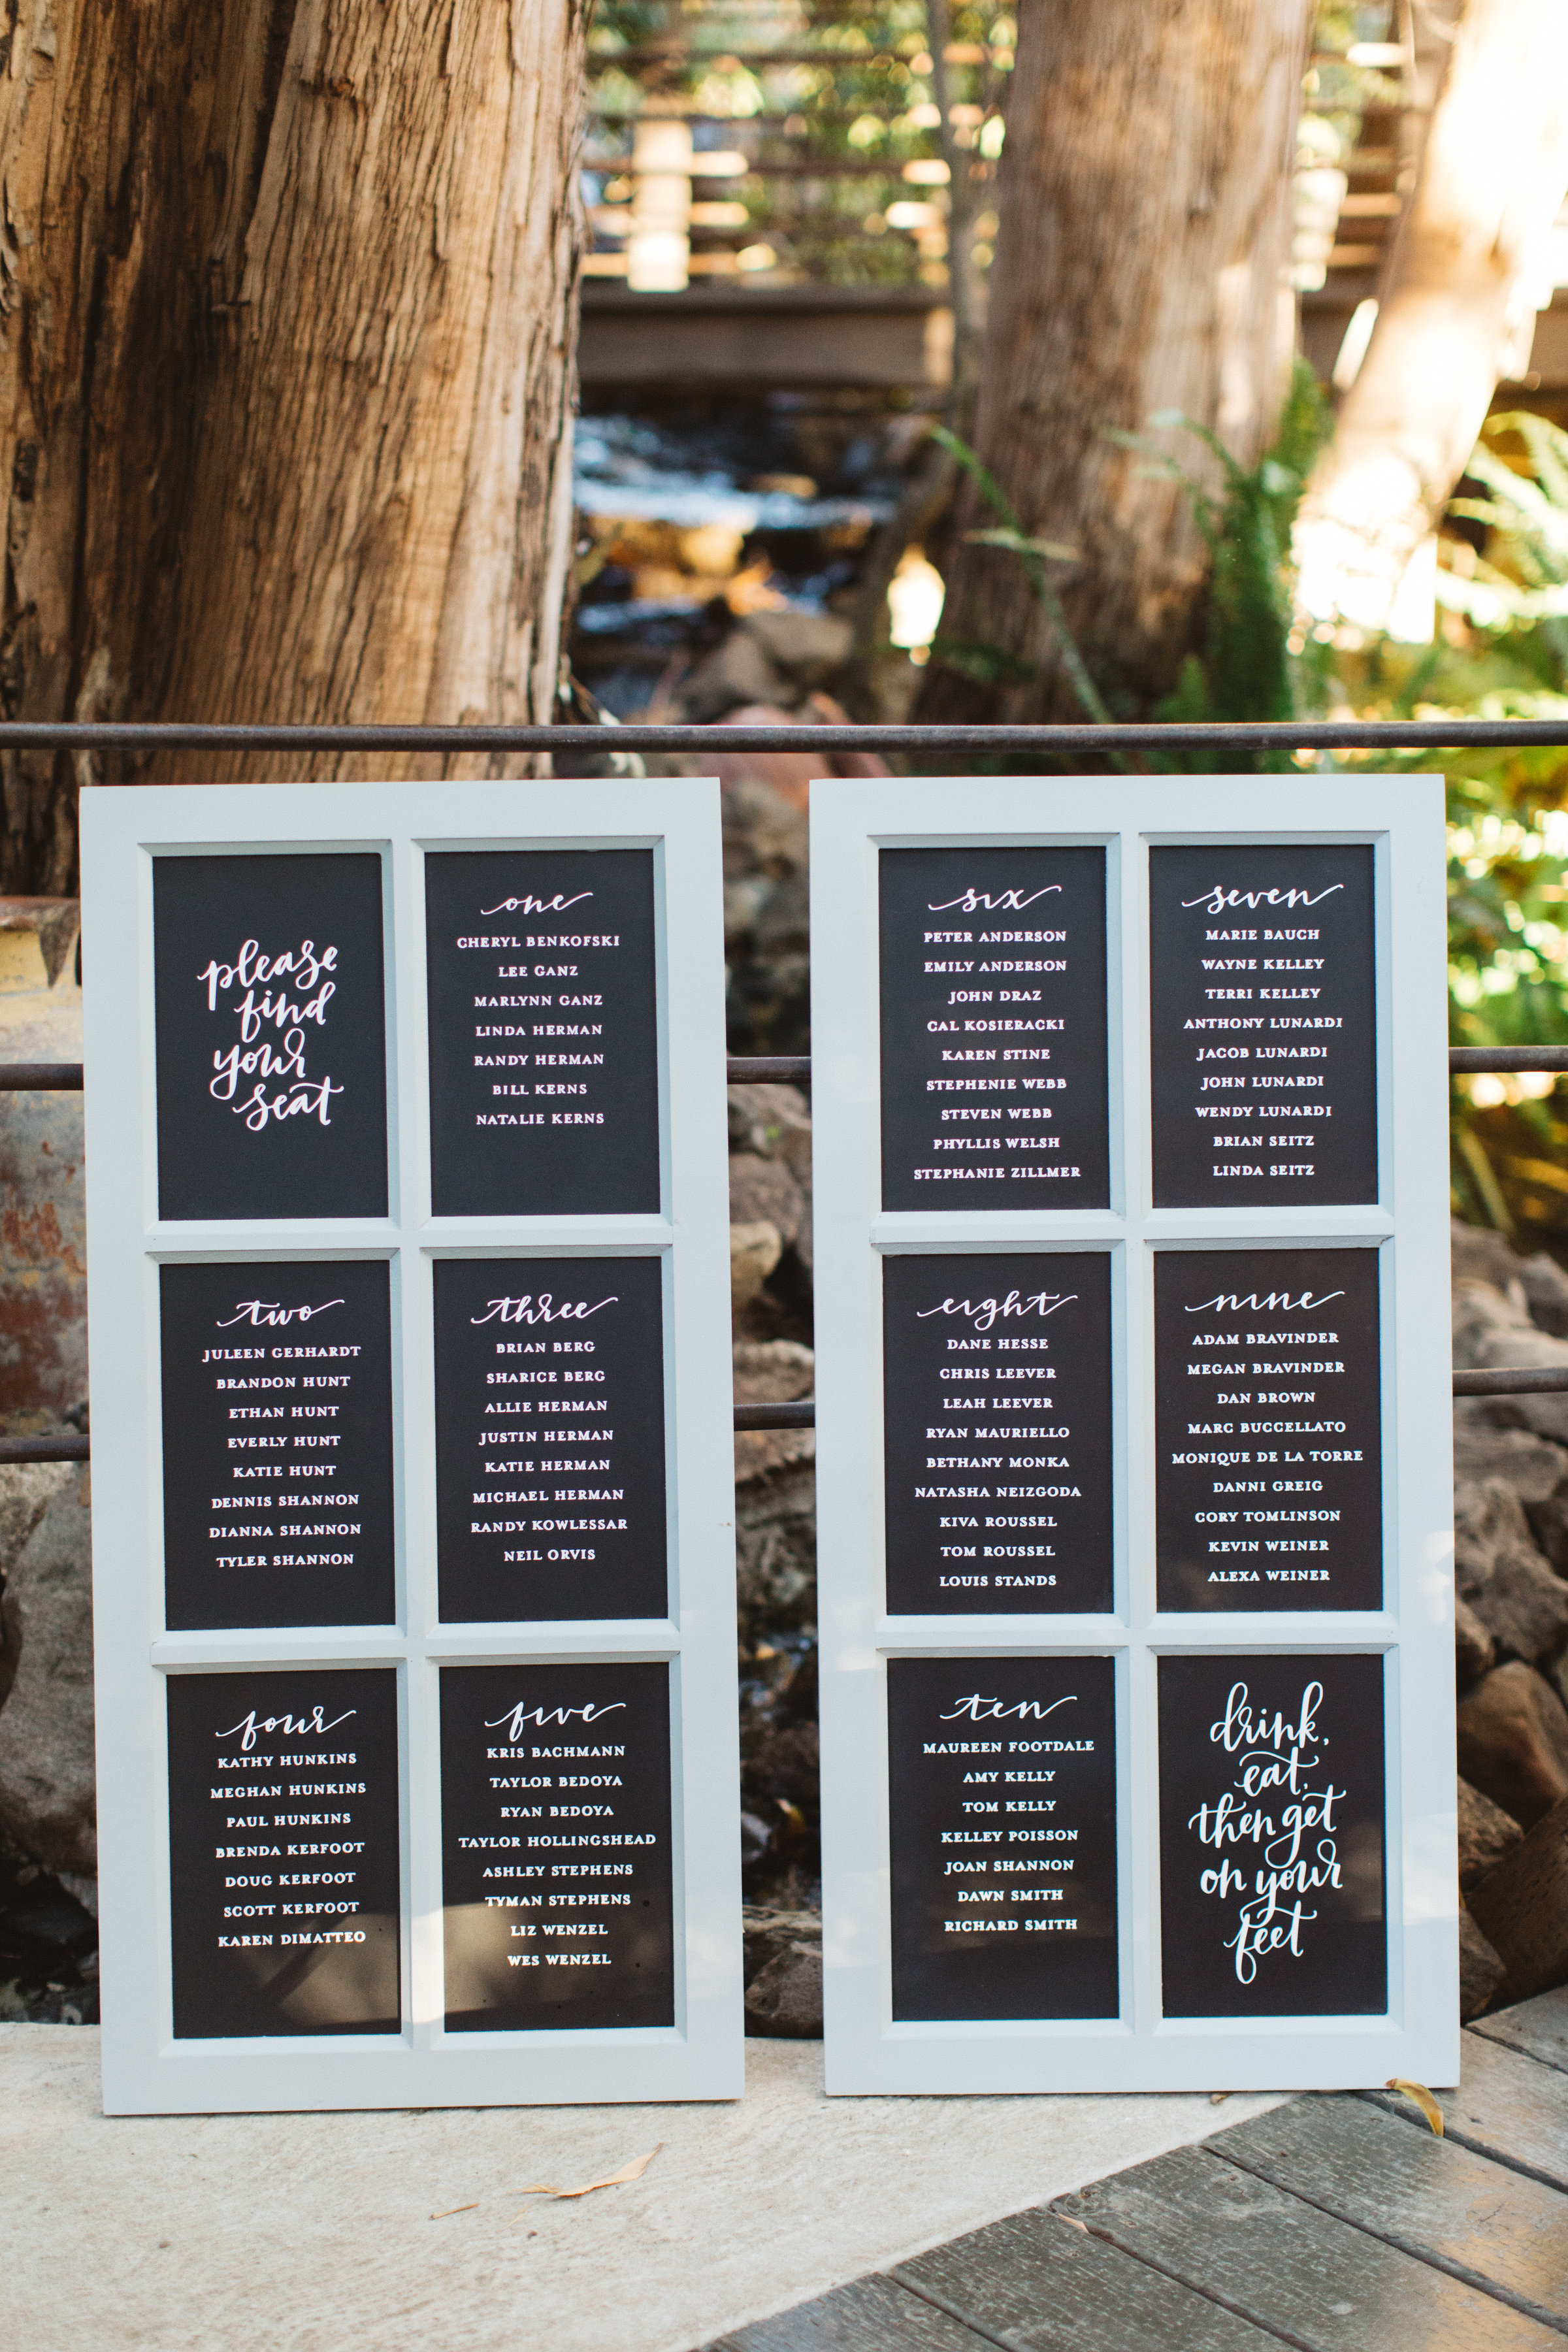 please
find
your
seat
one
CHERYL BENKOFSKI
LEE GANZ
MARLYNN GANZ
LINDA HERMAN
RANDY HERMAN
BILL KERNS
NATALIE KERNS
two
JULEEN GERHARDT
BRANDON HUNT
ETHAN HUNT
EVERLY HUNT
KATIE HUNT
DENNIS SHANNON
DIANNA SHANNON
TYLER SHANNON
three
BRIAN BERG
SHARICE BERG
ALLIE HERMAN
JUSTIN HERMAN
KATIE HERMAN
MICHAEL HERMAN
RANDY KOWLESSAR
NEIL ORVIS
four
KATHY HUNKINS
MEGHAN HUNKINS
PAUL HUNKINS
BRENDA KERFOOT
DOUG KERFOOT
SCOTT KERFOOT
KAREN DIMATTEO
five
KRIS BACHMANN
TAYLOR BEDOYA
RYAN BEDOYA
TAYLOR HOLLINGSHEAD
ASHLEY STEPHENS
TYMAN STEPHENS
LIZ WENZEL
WES WENZEL
six
PETER ANDERSON
EMILY ANDERSON
JOHN DRAZ
CAL KOSIERACKI
KAREN STINE
STEPHENIE WEBB
STEVEN WEBB
PHYLLIS WELSH
STEPHANIE ZILLMER
seven
MARIE BAUCH
WAYNE KELLEY
TERRI KELLEY
ANTHONY LUNARDI
JACOB LUNARDI
JOHN LUNARDI
WENDY LUNARDI
BRIAN SEITZ
LINDA SEITZ
eight
DANE HESSE
CHRIS LEEVER
LEAH LEEVER
RYAN MAURIELLO
BETHANY MONKA
NATASHA NEIZGODA
KIVA ROUSSEL
TOM ROUSSEL
LOUIS STANDS
nine
ADAM BRAVINDER
MEGAN BRAVINDER
DAN BROWN
MARC BUCCELLATO
MONIQUE DE LA TORRE
DANNI GREIG
CORY TOMLINSON
KEVIN WEINER
ALEXA WEINER
ten
MAUREEN FOOTDALE
AMY KELLY
TOM KELLY
KELLEY POISSON
JOAN SHANNON
DAWN SMITH
RICHARD SMITH
drink,
eat,
then get
on your
feet